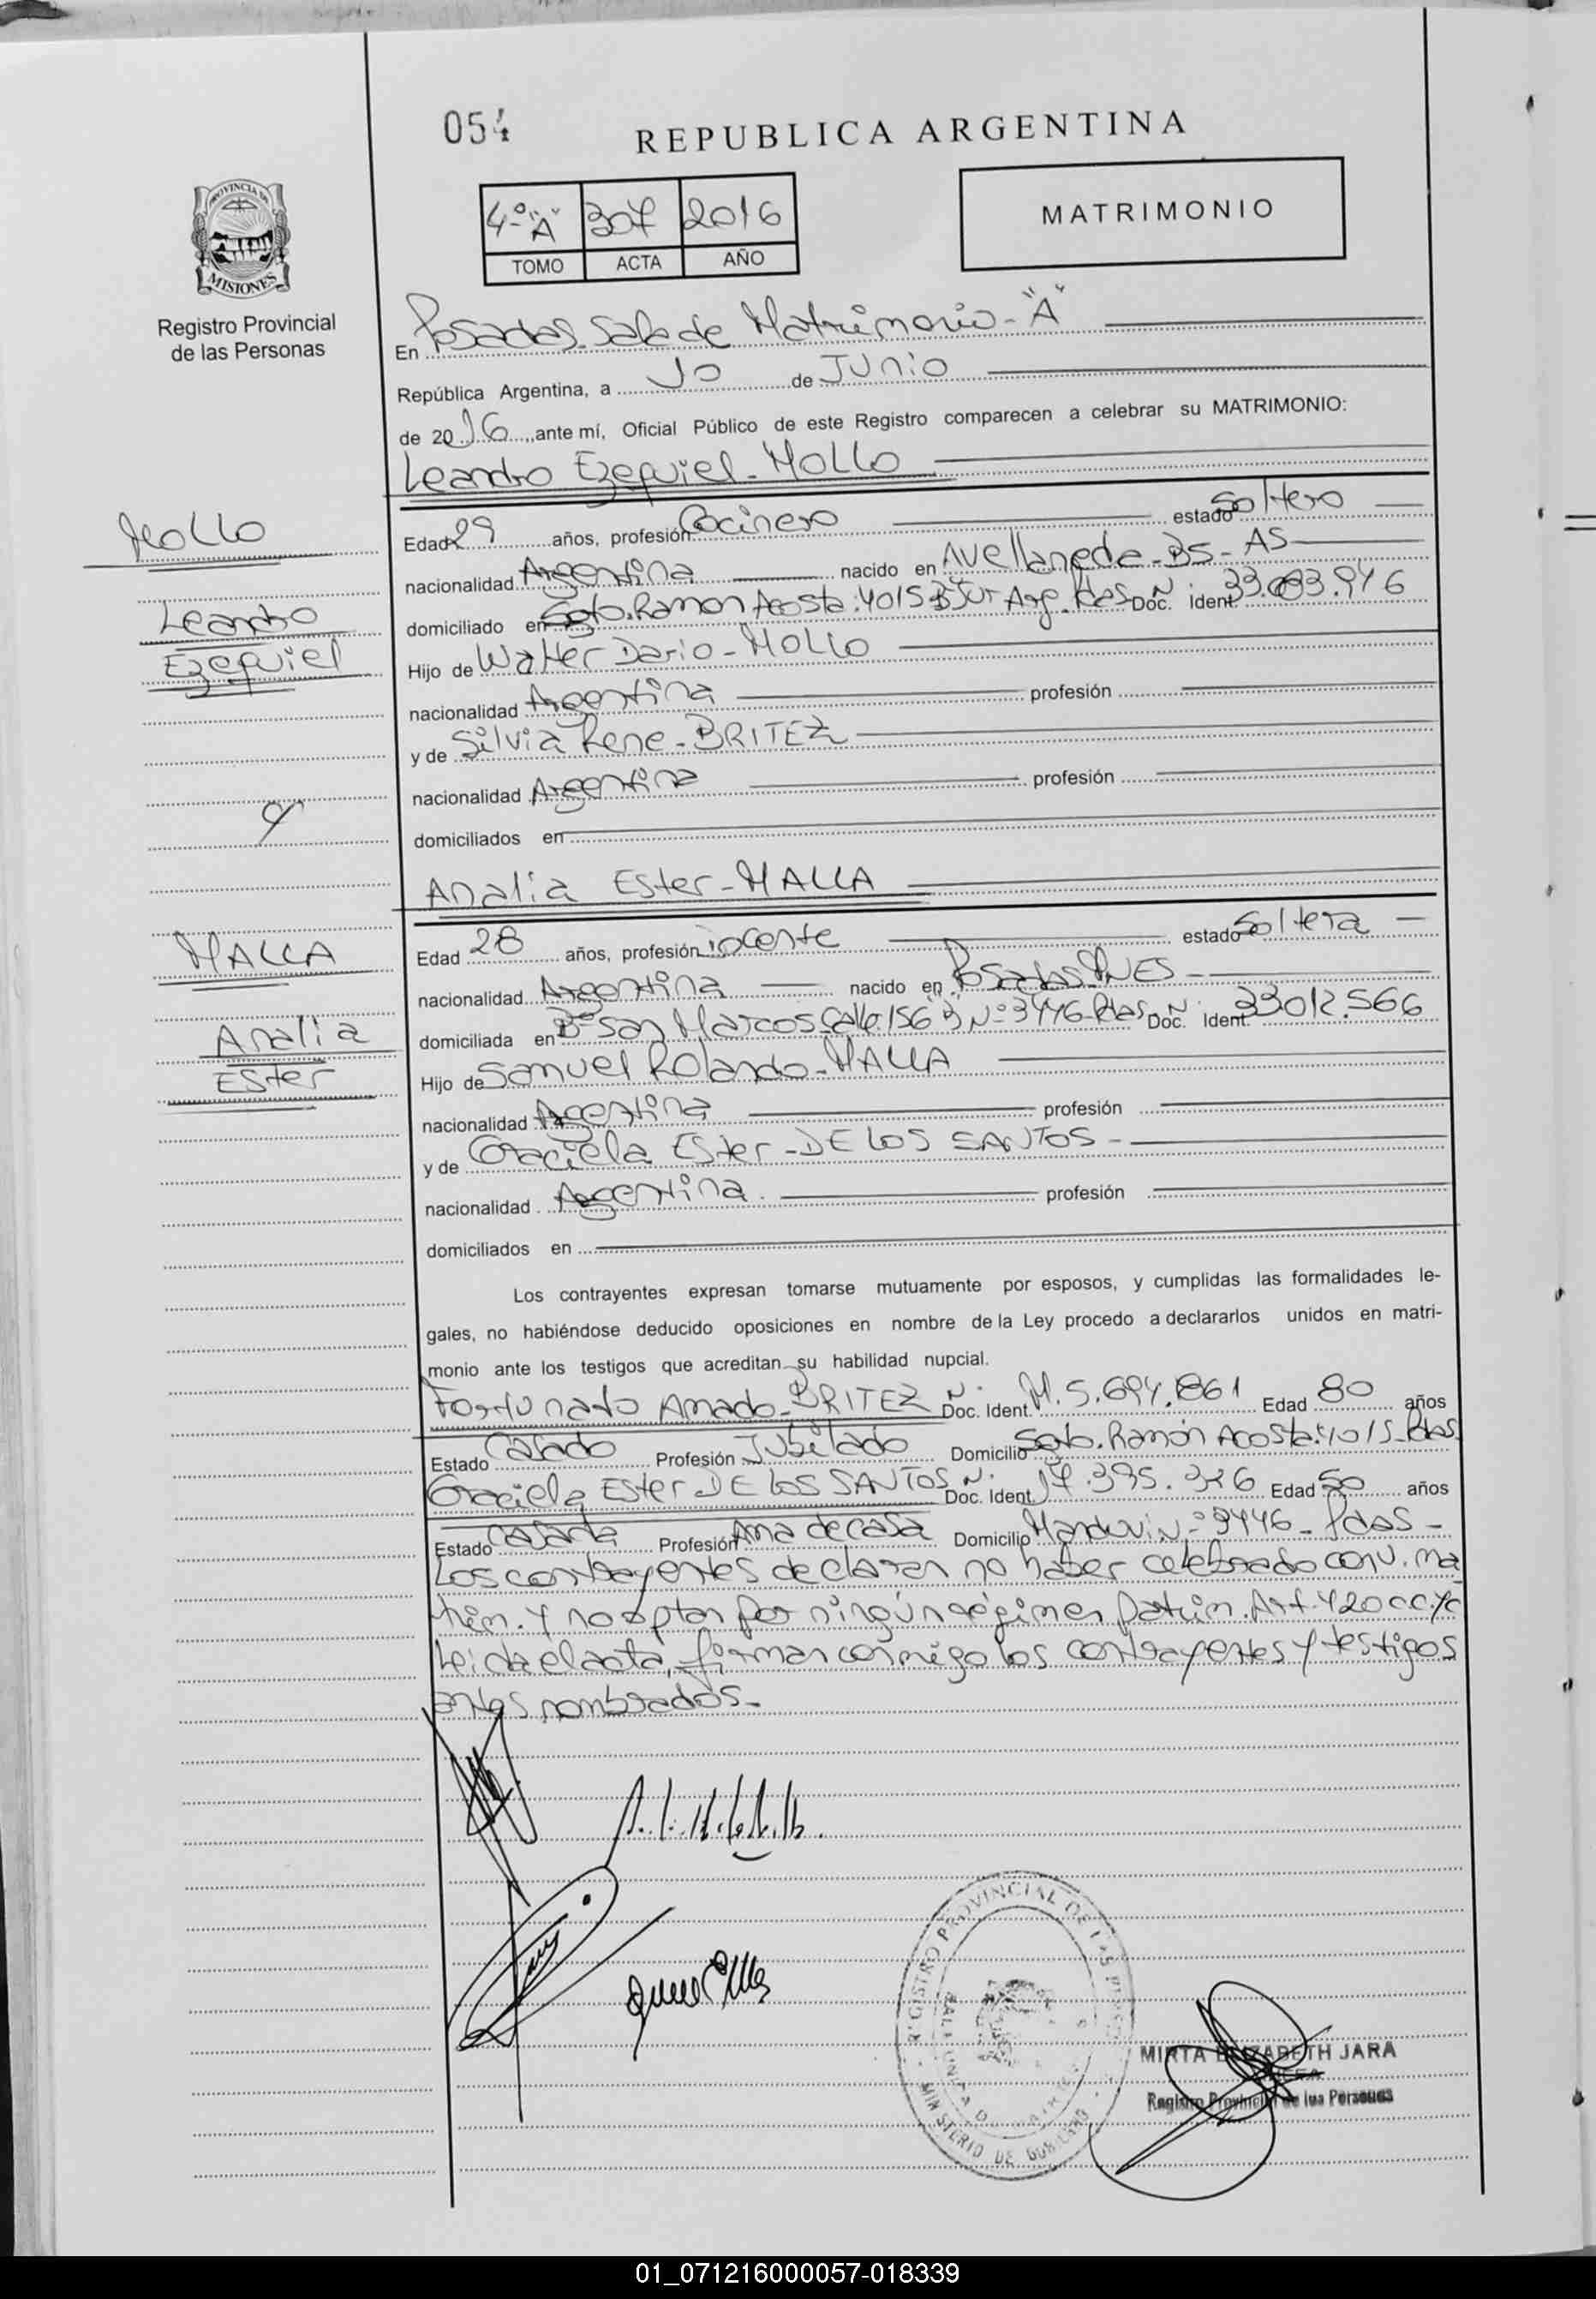 054
REPUBLICA ARGENTINA
4º "A" 307 2016
TOMO ACTA AÑO
MATRIMONIO
PROVINCIA DE
MISIONES
Registro Provincial
de las Personas
En Posadas Sala de Matrimonio - "A"
República Argentina, a 10 de Junio
de 2016, ante mí, Oficial Público de este Registro comparecen a celebrar su MATRIMONIO:
Leandro Ezequiel - MOLLO
MOLLO
Leandro
Ezequiel
Edad 29 años, profesión Cocinero estado Soltero
nacionalidad Argentina nacido en Avellaneda - BS - AS
domiciliado en Sgto. Ramon Acosta. 4015 Doc. Ident.
Hijo de Walter Dario - MOLLO
nacionalidad Argentina profesión
y de Silvia Rene - BRITEZ
nacionalidad Argentina profesión
domiciliados en
y
Analia Ester - MALLA
MALLA
Analia
Ester
Edad 28 años, profesión Docente estado Soltera
nacionalidad Argentina nacido en Posadas
domiciliada en Bº San Marcos Calle 156 Nº 3446 - Pdas Doc. Nº Ident. 33012.566
Hijo de Samuel Rolando - MALLA
nacionalidad Argentina profesión
y de Graciela Ester - DE LOS SANTOS -
nacionalidad Argentina profesión
domiciliados en
Los contrayentes expresan tomarse mutuamente por esposos, y cumplidas las formalidades le-
gales, no habiéndose deducido oposiciones en nombre de la Ley procedo a declararlos unidos en matri-
monio ante los testigos que acreditan su habilidad nupcial.
Fortunato Amado - BRITEZ Doc. Ident. M. 5.694.861 Edad 80 años
Estado Casado Profesión Jubilado Domicilio Sgto. Ramón Acosta 4015 - Pdas.
Graciela Ester DE LOS SANTOS Doc. Ident. 17.395.326 Edad 50 años
Estado Casada Profesión Ama de casa Domicilio Nº 3446 - Pdas -
Los contrayentes declaran no haber celebrado conv. ma
trim. y no optan por ningún régimen patrim. Art. 420 CC.
Leida el acta, firman conmigo los contrayentes y testigos
antes nombrados.-
REGISTRO PROVINCIAL DE LAS
MINISTERIO DE GOBIERNO
MIRTA ELIZABETH JARA
Registro Provincial de las Personas
01_071216000057-018339